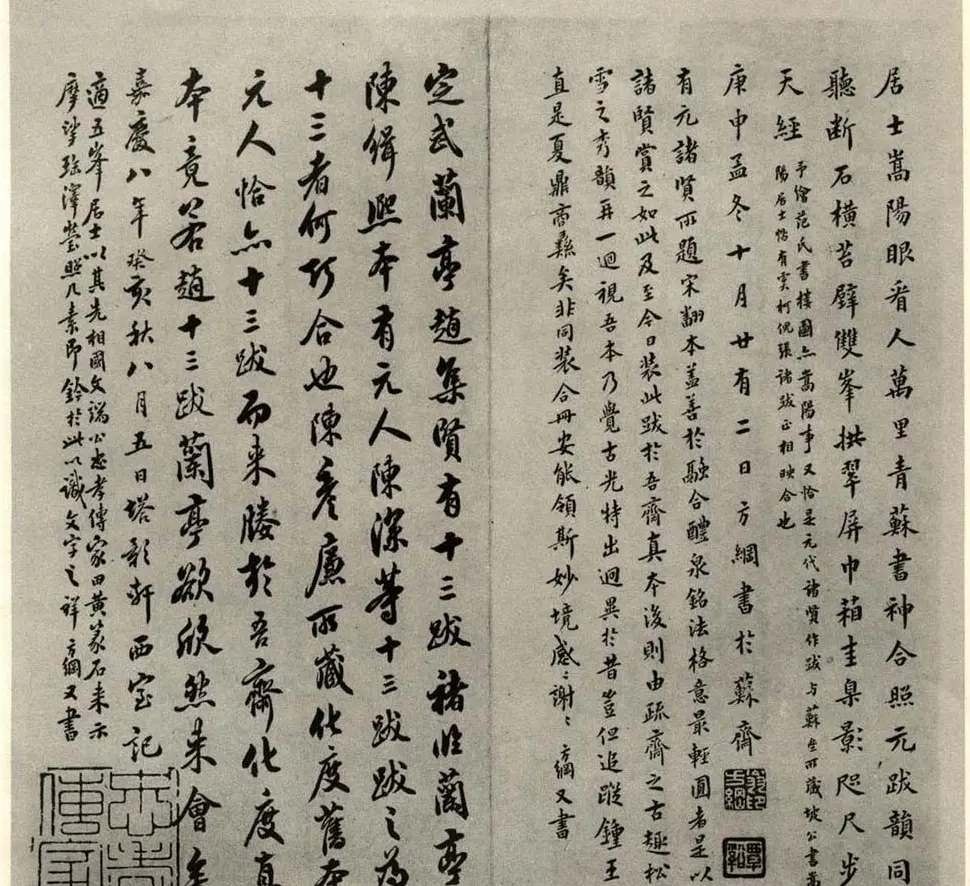 居士嵩陽眼看人萬里青蘇書神合照元跋韻同
聽斷石橫苔壁雙峯拱翠屏巾箱圭臬影咫尺步
天經
予繪范氏書樓圖亦嵩陽事又恰是元代諸賢作跋與蘇齋所藏坡公書嵩
陽居士帖有雲柯倪張諸跋正相映合也
庚申孟冬十月廿有二日方綱書於蘇齋
翁方綱印
覃谿
有元諸賢所題宋翻本蓋善於融合醴泉銘法格意最輕圓者是以
諸賢賞之如此及至今日裝此跋於吾齋真本後則由疏齋之古趣松
雪之秀韻再一迴視吾本乃覺古光特出迥異於昔豈但追蹤鍾王
直是夏鼎商彝矣非同裝合冊安能領斯妙境感〻謝〻方綱又書
定武蘭亭趙集賢有十三跋褚臨蘭亭
陳緝熙本有元人陳深等十三跋跋之為
十三者何巧合也陳彥廉所藏化度舊本
元人恰亦十三跋而来媵於吾齋化度真
本竟若趙十三跋蘭亭欲欣然来會
嘉慶八年癸亥秋八月五日塔影軒西室記
適五峯居士以其先相國文端公忠孝傳家田黃篆石来示
摩挲澤瑩照几素即鈐於此以識文字之祥方綱又書
忠孝傳家